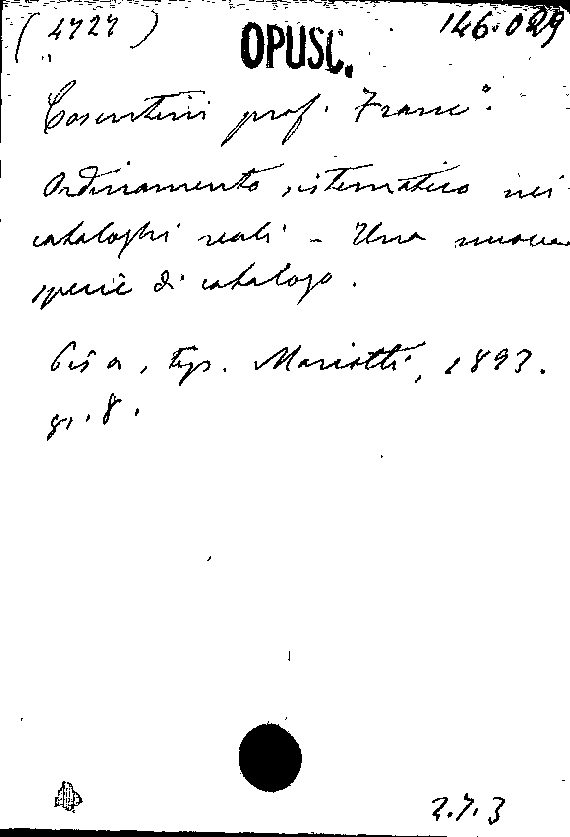 (4727) OPUSC. 146.029
Cosentini prof. Franc°.
Ordinamento sistematico nei
cataloghi reali - Una nuova
specie di catalogo.
Pisa, typ. Mariotti, 1893.
gr. 8.
2.7.3